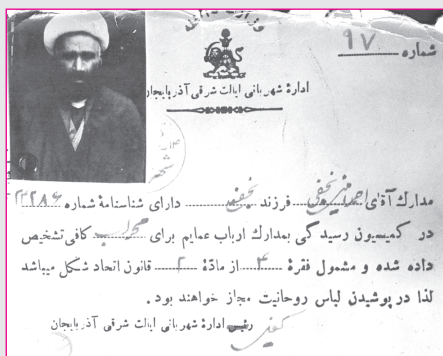 وزارت داخله
شماره ۹۷
ادارهٔ شهربانی ایالت شرقی آذربایجان
مدارك آقای احمد نجفی فرزند نجفقلی دارای شناسنامهٔ شماره ۲۳۲۸۶
در کمیسیون رسیدگی بمدارك ارباب عمایم برای کافی تشخیص
داده شده و مشمول فقرهٔ ۴ از مادهٔ ۲ قانون اتحاد شکل میباشد
لذا در پوشیدن لباس روحانیت مجاز خواهند بود .
رئیس ادارهٔ شهربانی ایالت شرقی آذربایجان